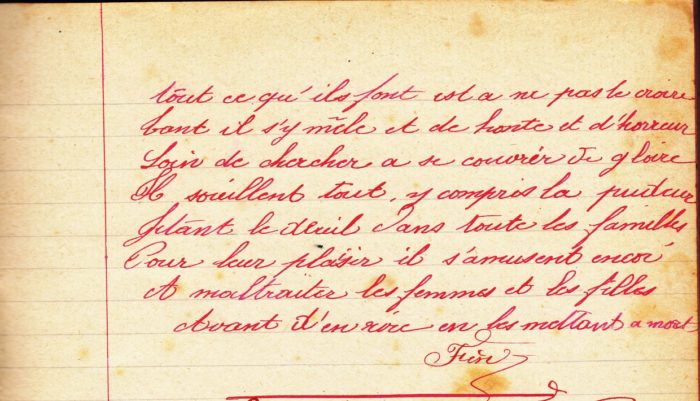 tout ce qu'ils font est a ne pas le croire
tant il s'y mêle et de honte et d'horreur
Loin de chercher a se couvrér de gloire
Il soúillent tout, y compris la pudeur
Jétant le deuil dans toute les familles
Pour leur plaisir il s'amusent encor
A maltraiter les femmes et les filles
Avant d'en rire en les mettant a mort
Fin